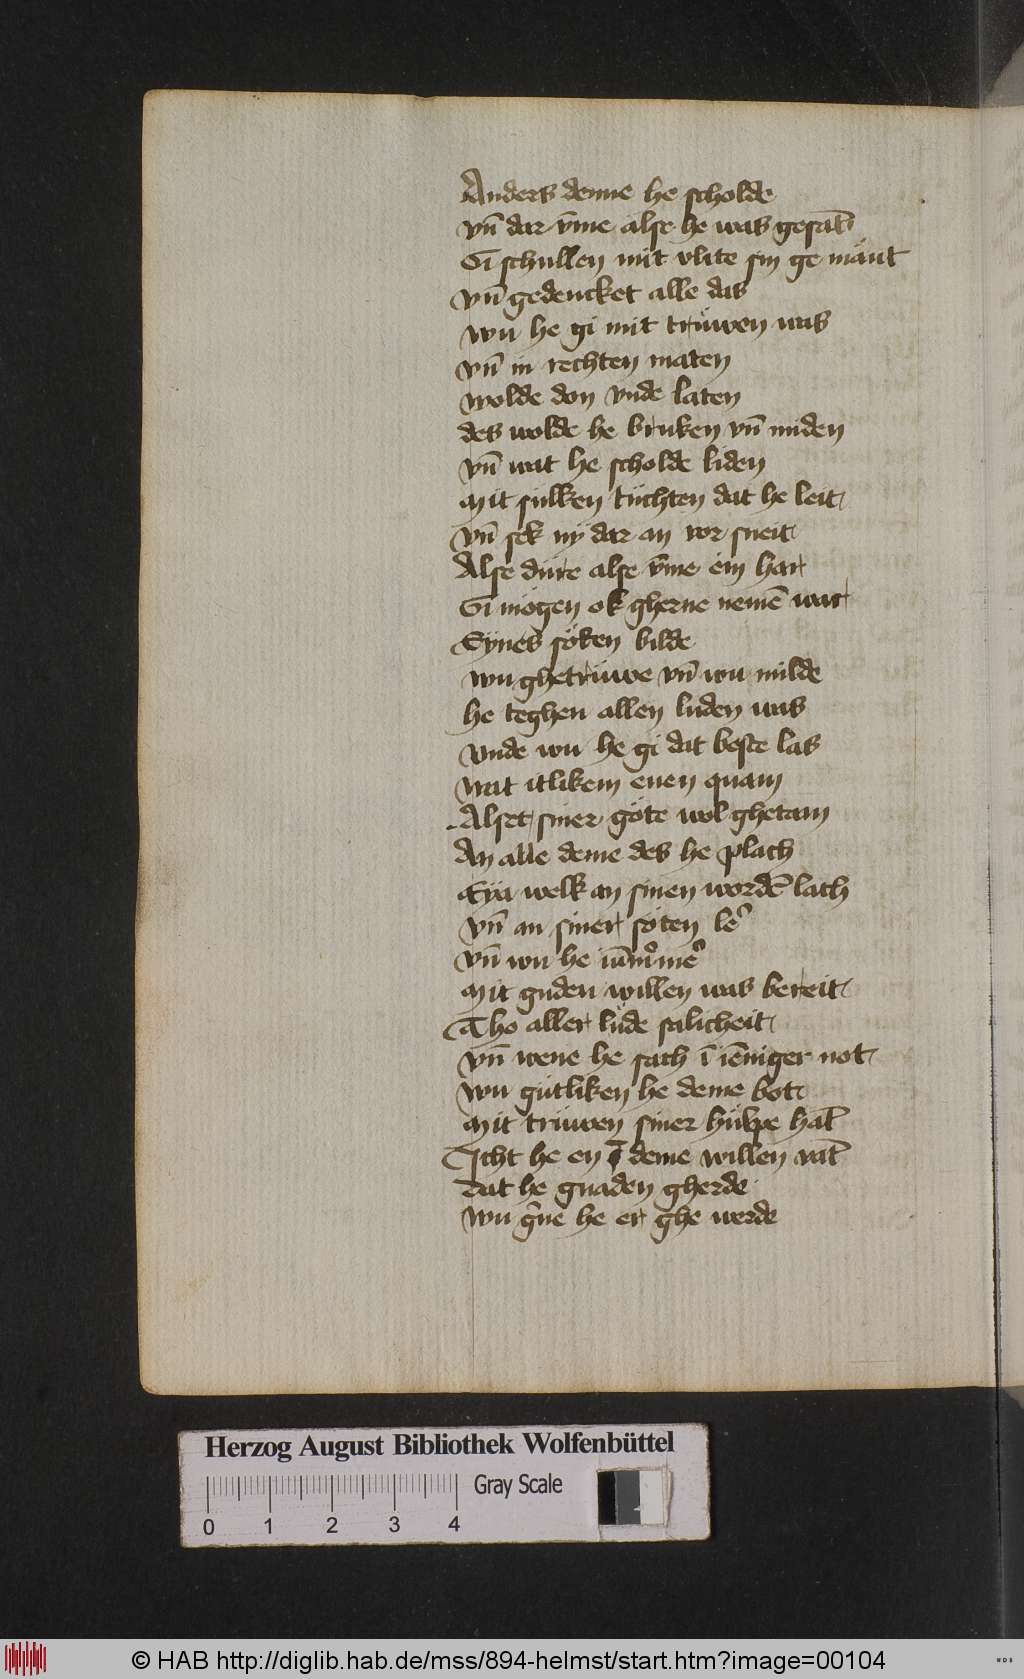 Anders denne he scholde
vn̄ dar v̄me alse he was gesat᷑
Gi schullen mit vlite sin ge mant
vn̄ gedencket alle das
wu he gi mit trüwen was
vn̄ in rechten maten
wolde don vnde laten
des wolde he bruken vn̄ miden
vn̄ wat he scholde liden
Mit sulken tüchten dat he leit
vn̄ sek ny dar an vor sneit
Alse düre alse v̄me ein har
Gi mögen ok gherne nemē war
Synes söken bilde
wu ghetrüwe vn̄ wu milde
he teghen allen luden was
vnde wu he gi dat beste las
wat itlikem euen quam
Alset siner göte wol ghetam
An alle deme des he plach
Eya welk an sinen wordē lach
vn̄ an siner söten le᷑
vn̄ wu he iūm᷑me᷑
Mit guden willen was bereit
Tho aller lüde salicheit
vn̄ wene he sach ī iēniger not
wu gütliken he deme bot
Mit trüwen siner hülpe hat᷑
Icht he en deme willen vat᷑
dat he gnaden gherde
wu g᷑ne he er ghe werde
Herzog August Bibliothek Wolfenbüttel
Gray Scale
0 1 2 3 4
© HAB http://diglib.hab.de/mss/894-helmst/start.htm?image=00104